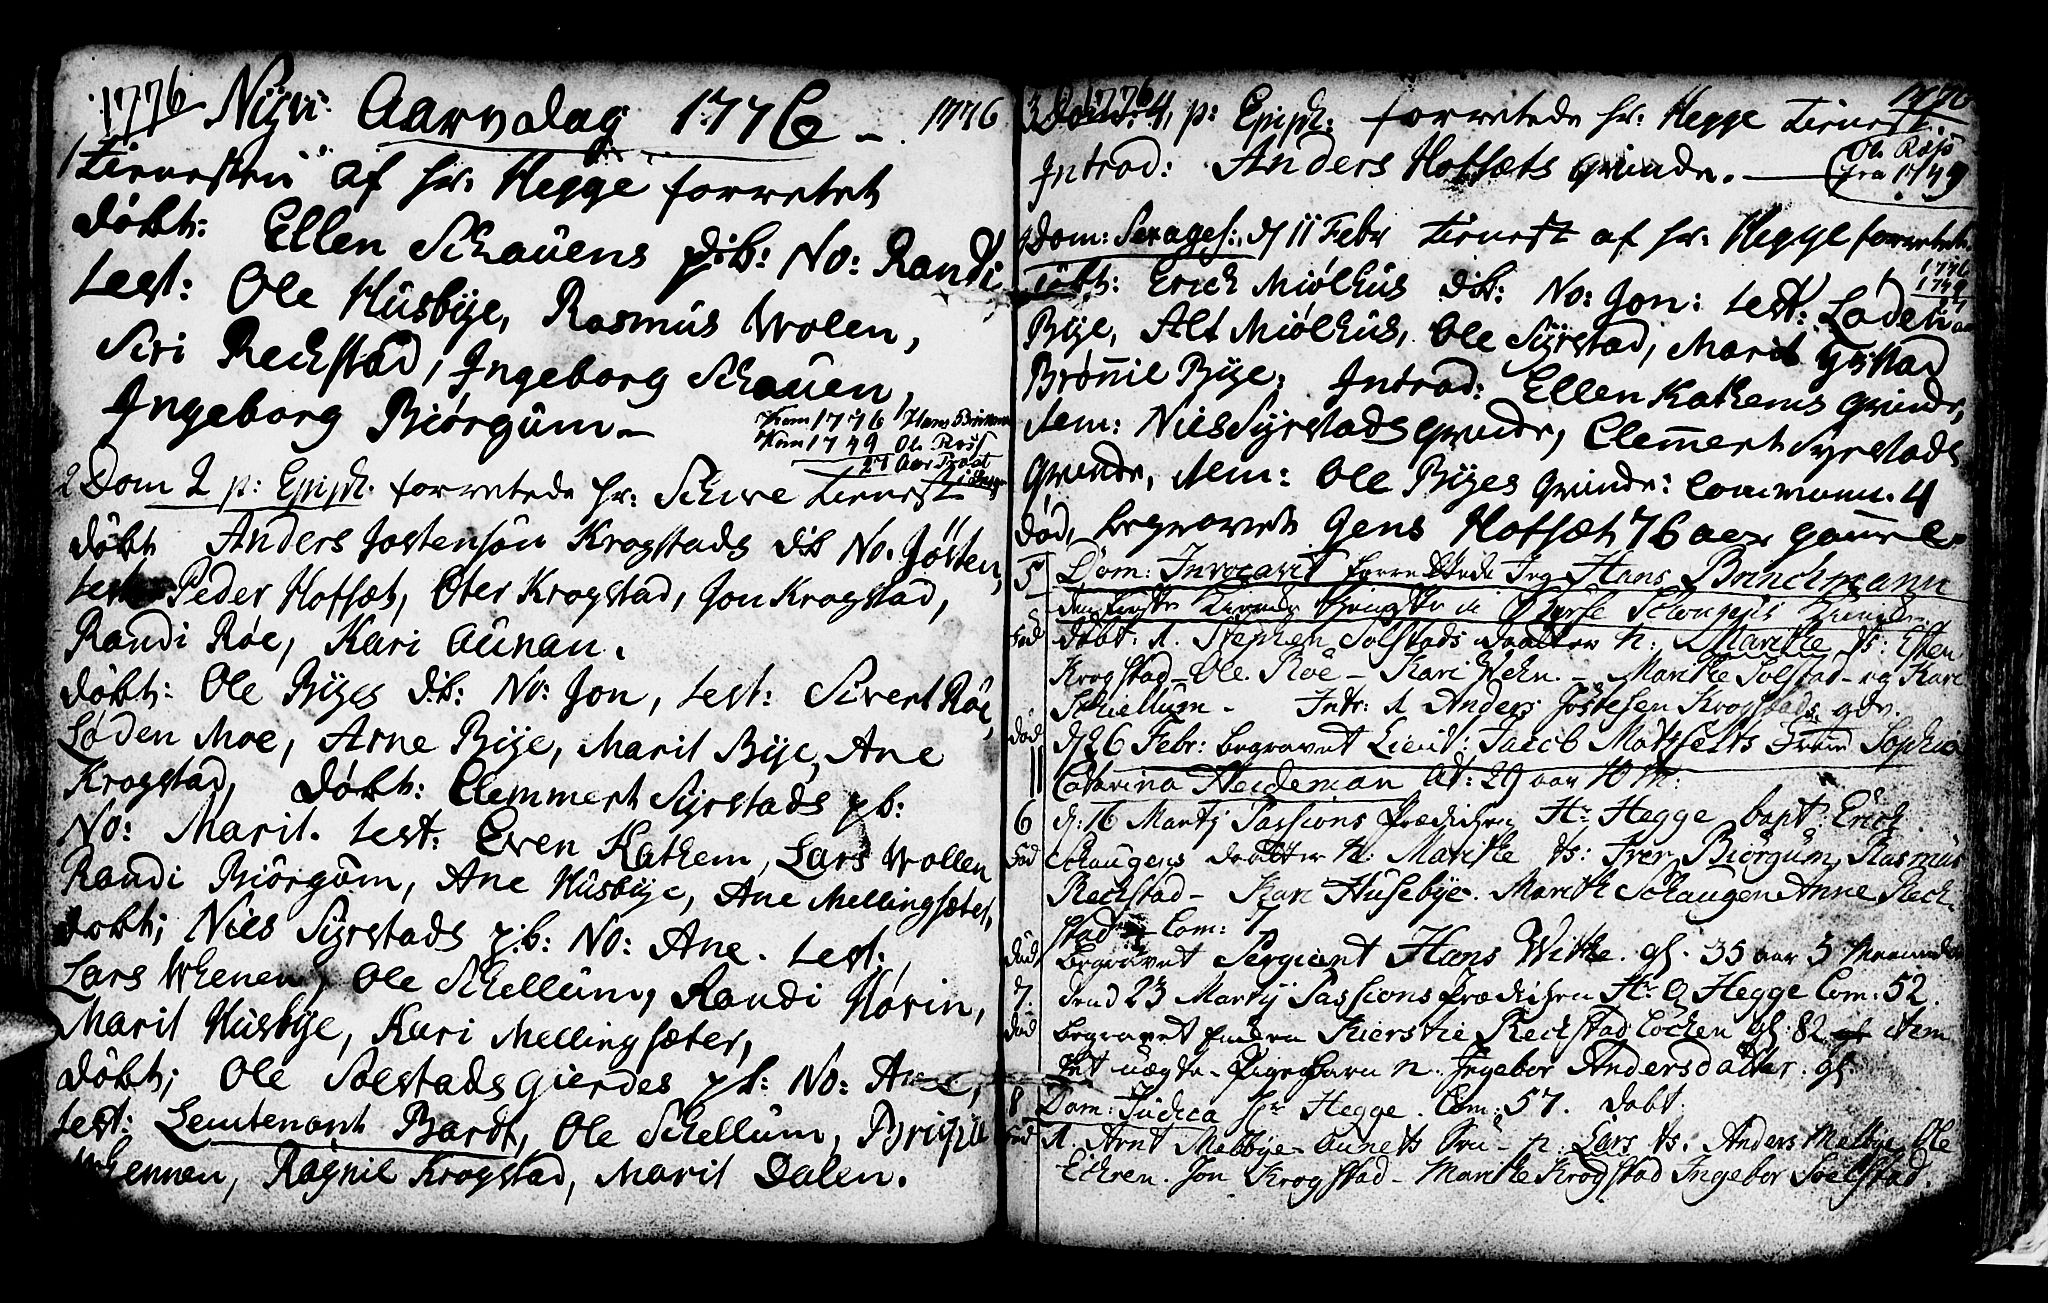 1776 Nyt: Aarsdag 1776 - 1776
1 tienesten af hr: Hegge forrettet
døbt: Ellen Schauens p:b: No: Randi
test: Ole Husbye, Rasmus Wolen,
Siri Reckstad, Ingeborg Schauen,
Ingeborg Biørgum -
Kom 1776 Hans Brinkman
Kom 1749 Ole Røst
27 Aar Præst
2 Dom 2 p: Epiph. forrettede hr: Schive tienest
døbt Anders Jostensøn Krogstads dib No. Jøsten,
test Peder Hofsæt, Oter Krogstad, Jon Krogstad,
Randi Røe, Kari Aunan.
døbt: Ole Byes dib: No: Jon, test: Sivert Røe,
Løden Moe, Arne Bye, Marit Bye, Ane
Krogstad, Døbt: Clemmert Syrstads pb:
No: Marit. test: Even Kathem, Lars Wollen
Randi Biørgum, Ane Husbye, Ane Mellingsæter,
døbt; Niels Syrstads p:b: No: Ane. test:
Lars Whenen, Ole Schellum, Randi Hovin,
Marit Husbye, Kari Mellingsæter,
døbt; Ole Solstads Gierdes pb: No: Ane,
test: Leutenant Bardt, Ole Schellum,
Whennen, Ragnil Krogstad, Marit Dalen.
1776 1776
3 Dom: 4, p: Epiph: forrettede hr: Hegge tienest
Introd: Anders Hofsæts quinde. - Ole Røst
fra 1749
4 Dom: Sexages:, d 11 Febr tienest af hr: Hegge forrettet.
1776
1749
27
døbt: Erich Miølhus dib: No: Jon: test: Løden
Bye, Alt Miølhus, Ole Syrstad, Marit Gystad
Brønnil Bye; Introd: Ellen Kathems quinde,
Item: Niels Syrstads quinde, Clemmert Syrstads
quinde, Item: Ole Byes quinde: Commun. 4
død, begravet Jens Hofsæt 76 aar gammel
5 Dom: Invocavit forrettede Jeg Hans Brinchmann
den første
fød døbt: d. Stephen Solstads daatter n: Marithe, ts: Esten
Krogstad - Ole Røe - Kari Wehn. - Marithe Solstad - og Kari
Schiellum - Intr: d Anders Jøstesen Krogstads qdv.
død d 26 Febr: begravet Lieut: Jacob Frue Sophia
Catarina Heideman æt: 29 aar 10 M:
6 d: 16 Martÿ Passions Prædichen Hr Hegge bapt: Erich
fød Schaugens daatter n: Marithe ts: Iver Biørgum, Rasmus
Reckstad - Kari Husebye. Marith Schaugen Anne Reck-
stad - Com: 7
død begravet Sergiant Hans Withe. gl. 35 aar 3 Maaneder
7. dend 23 Martÿ Passions Prædichen Hr Hegge Com: 52.
død begravet Kierstie Reckstad Løchen gl: 82 Item
et uægte Pigebarn n. Ingebor Andersdatter. gl:
8 Dom: Judica hr Hegge. Com: 57. døbt
fød d. Arnt Melbye n: Lars ts: Anders Melbye Ole
Echren. Jon Krogstad - Marithe Krogstad Ingebor Soelstad.